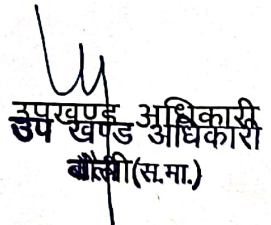 उपखण्ड अधिकारी
उप खण्ड अधिकारी
बौंली (स.मा.)